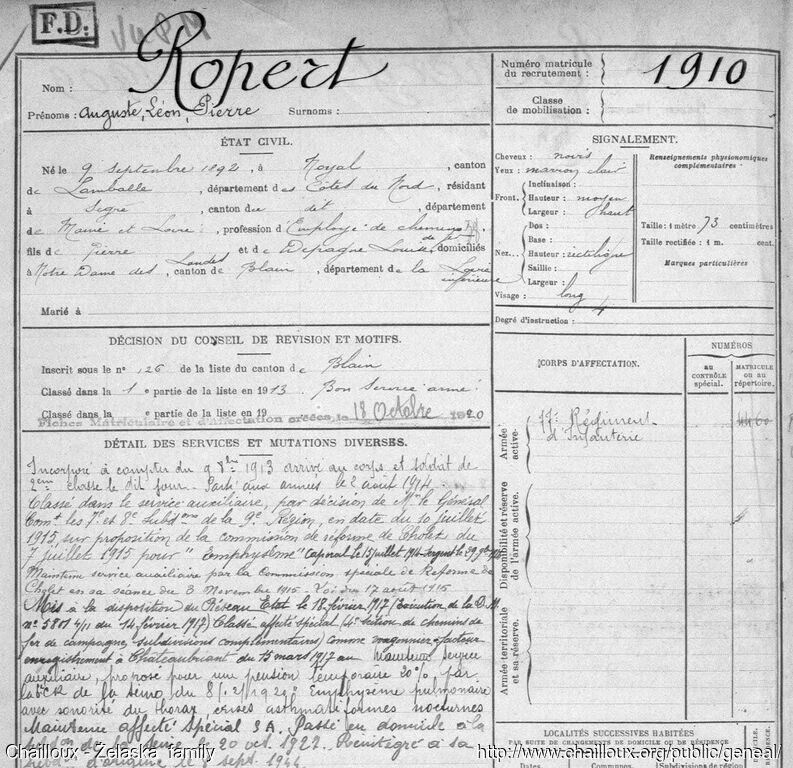 F.D.
Nom :
Ropert
Prénoms : Auguste, Léon, Pierre
Surnoms :
Numéro matricule
du recrutement :
1910
Classe
de mobilisation :
ÉTAT CIVIL.
Né le 9 septembre 1892, à Noyal, canton
de Lamballe, département des Côtes du Nord, résidant
à Segré, canton du dit, département
de Maine et Loire, profession d'Employé de chemins
de fer
fils de Pierre et de Depagne Louise domiciliés
à Notre Dame des Landes, canton de Blain, département de la Loire
inférieure
Marié à
SIGNALEMENT.
Cheveux : noirs
Yeux : marron clair
Front.
Inclinaison :
Hauteur : moyen
Largeur : haut
Nez.
Dos :
Base :
Hauteur : rectiligne
Saillie :
Largeur :
Visage : long
Renseignements physionomiques
complémentaires :
Taille : 1 mètre 73 centimètres
Taille rectifiée : 1 m. cent.
Marques particulières
Degré d'instruction :
DÉCISION DU CONSEIL DE RÉVISION ET MOTIFS.
Inscrit sous le n° 126 de la liste du canton de Blain
Classé dans la 1e partie de la liste en 1913. Bon service armé
Classé dans la e partie de la liste en 19
Fiches Matriculaire et d'affectation créées le 18 Octobre 1920
CORPS D'AFFECTATION.
NUMÉROS
AU
CONTRÔLE
spécial.
MATRICULE
OU AU
répertoire.
Armée
active.
77e Régiment
d'Infanterie
4460
Disponibilité et réserve
de l'armée active.
Armée territoriale
et sa réserve.
DÉTAIL DES SERVICES ET MUTATIONS DIVERSES.
Incorporé à compter du 9 8bre 1913 arrivé au corps et soldat de
2eme classe le dit jour. Parti aux armées le 2 août 1914.
Classé dans le service auxiliaire, par décision de Mr le Général
Comt les 7e et 8e Subdons de la 9e Région, en date du 10 juillet
1915 sur proposition de la commission de réforme de Cholet du
7 juillet 1915 pour "Emphysème" Caporal le 15 juillet 1914
Maintenu service auxiliaire par la Commission spéciale de Réforme de
Cholet en sa séance du 3 Novembre 1915. Loi du 17 août 1915
Mis à la disposition du Réseau Etat le 18 février 1917 (Exécution de la D.M.
n° 5801 4/11 du 14 février 1917) Classé affecté spécial (4e Section de chemins de
fer de campagne, subdivisions complémentaires) comme wagonnier facteur
enregistrement à Chateaubriant du 15 mars 1917 au Maintenu service
auxiliaire, proposé pour une pension temporaire 20% par
la de la du Emphysème pulmonaire
avec sonorité du thorax crises asthmatiformes nocturnes
Maintenu affecté Spécial S.A. Passé en domicile à la
le 20 oct. 1922. Réintégré à sa
d'origine le sept. 1944
LOCALITÉS SUCCESSIVES HABITÉES
PAR SUITE DE CHANGEMENTS DE DOMICILE OU DE RÉSIDENCE
Dates. Communes. Subdivisions de région
Chailloux - Zelaska family
http://www.chailloux.org/public/geneal/